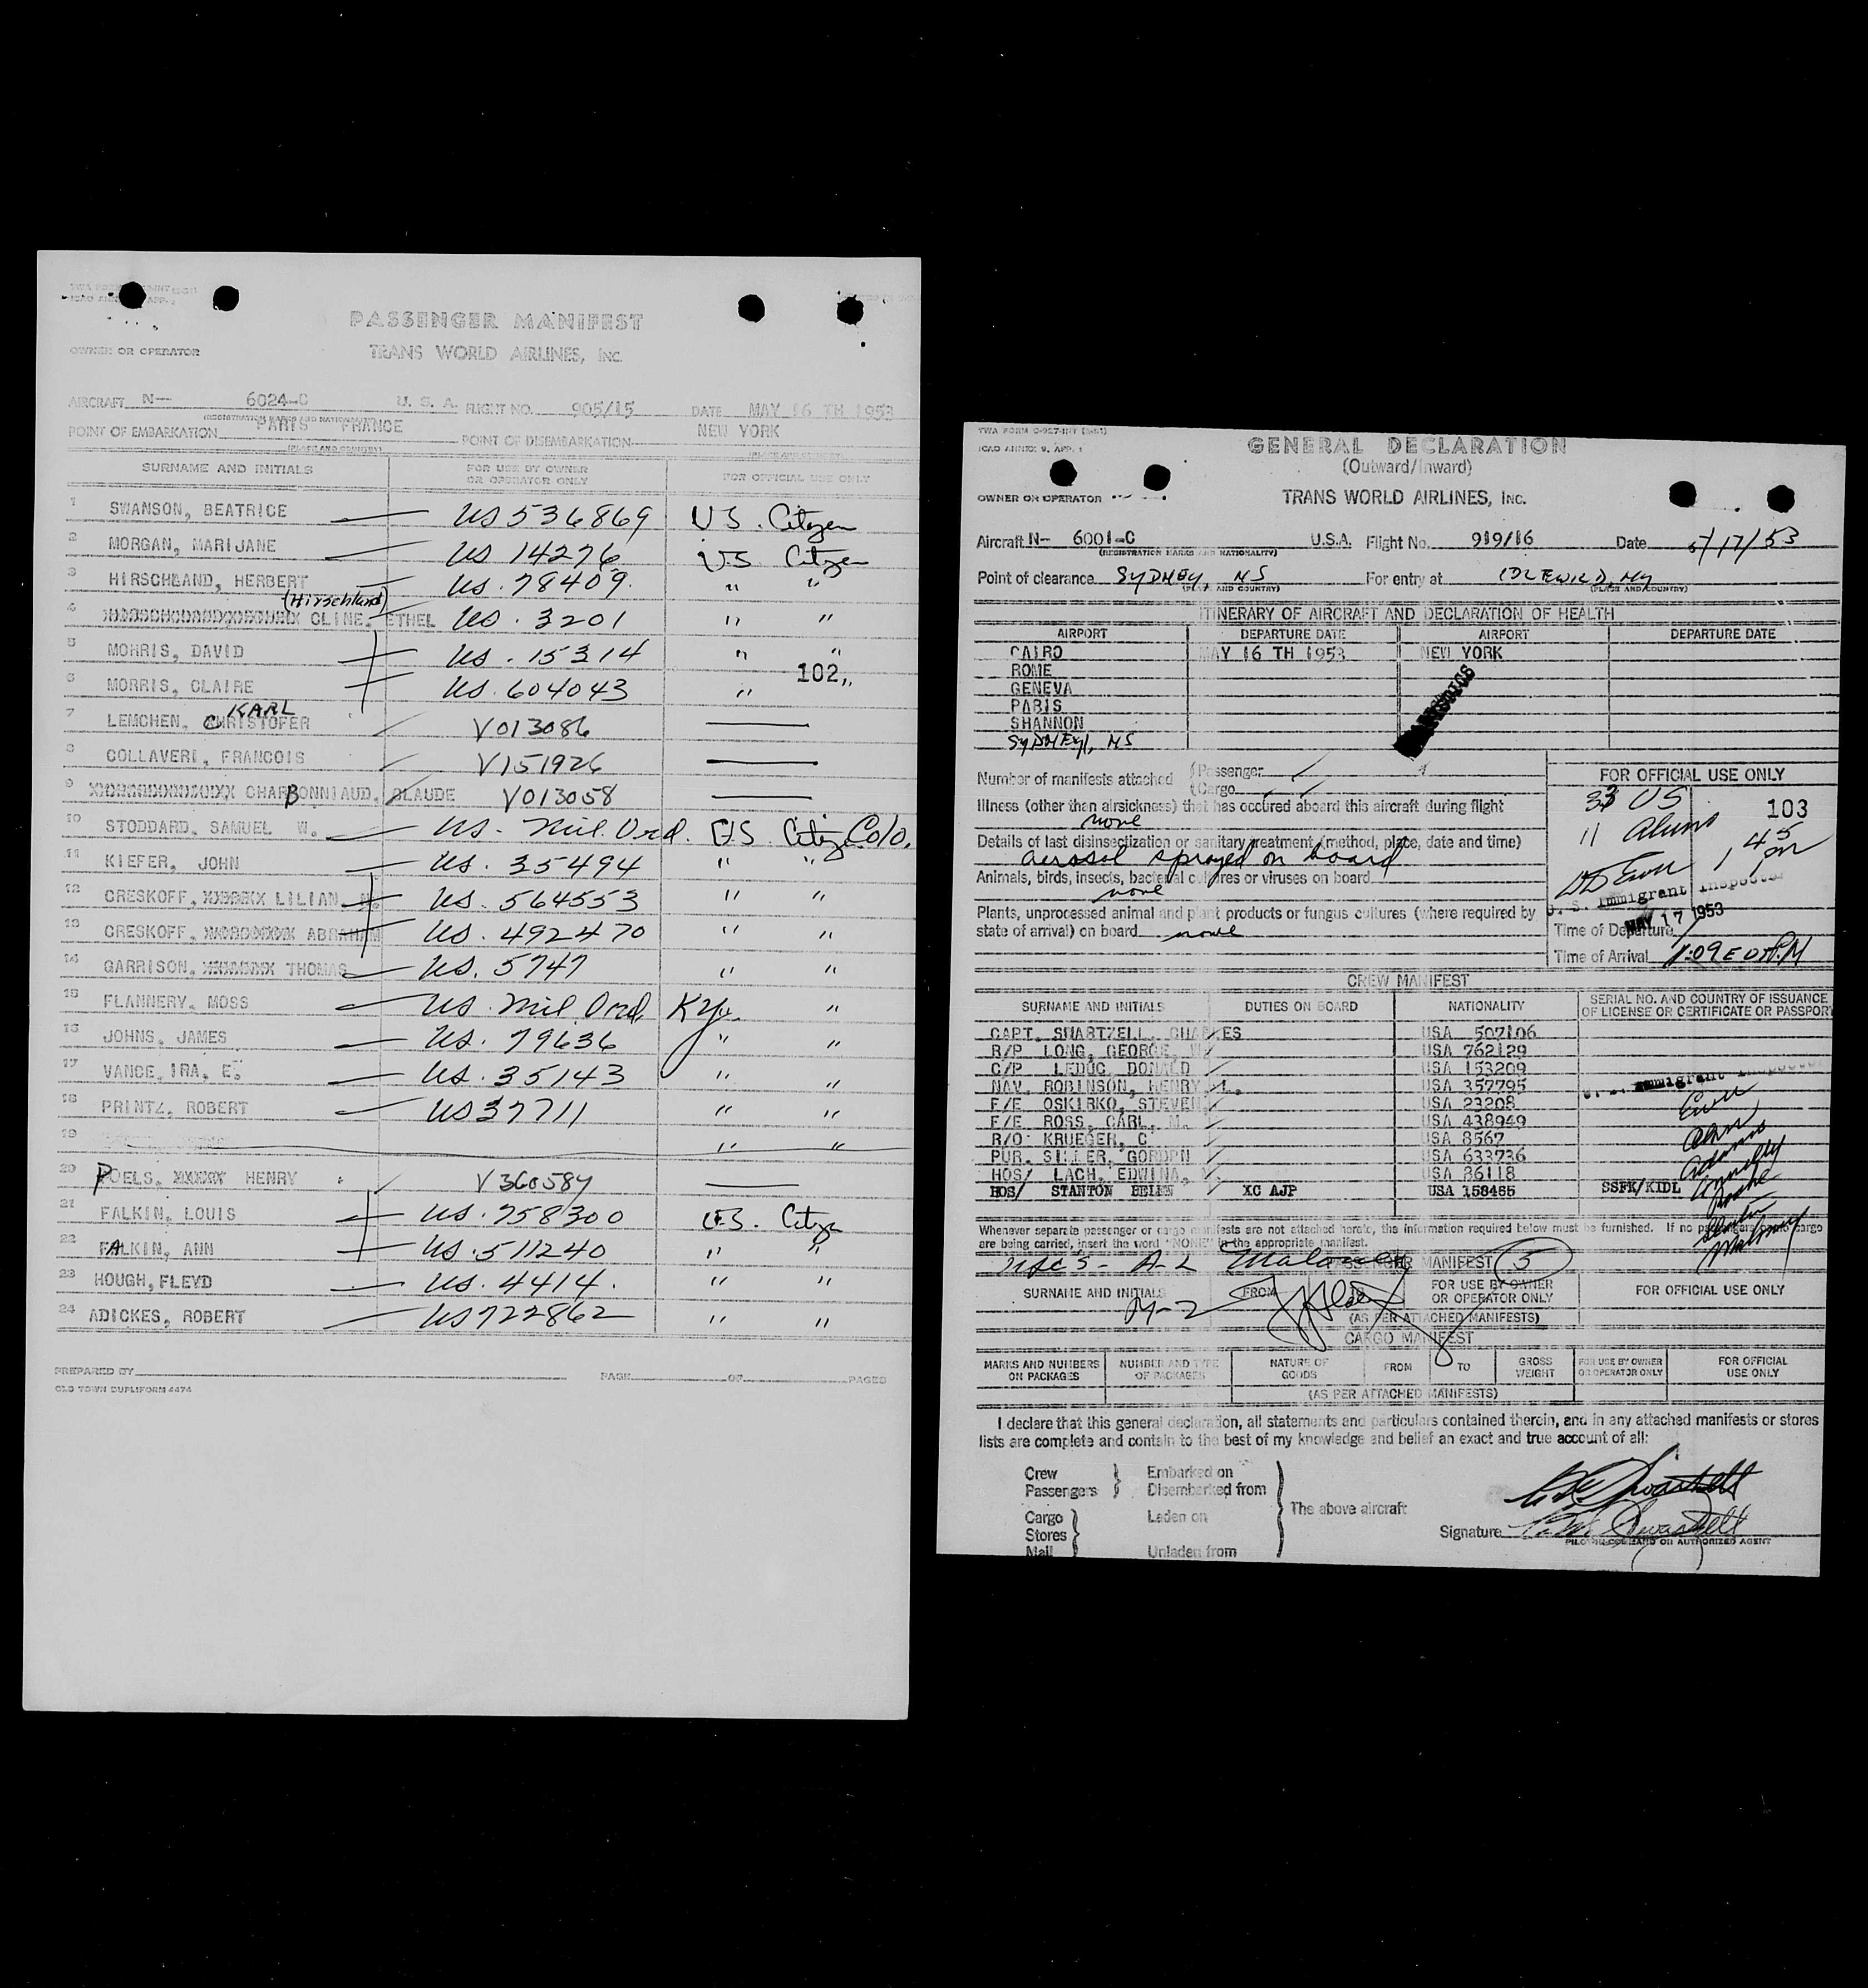 PASSENGER MANIFEST
OWNER OR OPERATOR
TRANS WORLD AIRLINES, INC.
AIRCRAFT N- 6024-C U. S. A. FLIGHT NO. 905/15 DATE MAY 16 TH 1953
(REGISTRATION MARKS AND NATIONALITY)
POINT OF EMBARKATION PARIS FRANCE POINT OF DISEMBARKATION NEW YORK
(PLACE AND COUNTRY) (PLACE AND COUNTRY)
SURNAME AND INITIALS FOR USE BY OWNER OR OPERATOR ONLY FOR OFFICIAL USE ONLY
1 SWANSON, BEATRICE US 536869 US. Citizen
2 MORGAN, MARIJANE US 14276 US Citizen
3 HIRSCHLAND, HERBERT US. 78409. " "
(Hirschland)
4 CLINE, ETHEL US. 3201 " "
5 MORRIS, DAVID US. 15314 " "
102
6 MORRIS, CLAIRE US. 604043 " "
KARL
7 LEMCHEN, CHRISTOFER V013086
8 COLLAVERI, FRANCOIS V151926
9 CHARBONNIAUD, CLAUDE V013058
10 STODDARD, SAMUEL W. US. Mil. Ord. US. Citiz Colo.
11 KIEFER, JOHN US. 35494 " "
12 CRESKOFF, LILIAN US. 564553 " "
13 CRESKOFF, ABRAHAM US. 492470 " "
14 GARRISON, THOMAS US. 5747 " "
15 FLANNERY, MOSS US. Mil Ord Ky. "
16 JOHNS, JAMES US. 79636 " "
17 VANCE, IRA, E. US. 35143 " "
18 PRINTZ, ROBERT US37711 " "
19 " "
20 POELS, HENRY V360584
21 FALKIN, LOUIS US. 758300 US. Citizen
22 FALKIN, ANN US. 511240 " "
23 HOUGH, FLEYD US. 4414. " "
24 ADICKES, ROBERT US722862 " "
PREPARED BY PAGE OF PAGES
OLD TOWN DUPLIFORM 4474
TWA FORM
ICAO ANNEX 9, APP. 1
GENERAL DECLARATION
(Outward/Inward)
OWNER OR OPERATOR TRANS WORLD AIRLINES, INC.
Aircraft N- 6001-C U.S.A. Flight No. 919/16 Date 5/17/53
(REGISTRATION MARKS AND NATIONALITY)
Point of clearance SYDNEY, NS For entry at IDLEWILD, NY
(PLACE AND COUNTRY) (PLACE AND COUNTRY)
ITINERARY OF AIRCRAFT AND DECLARATION OF HEALTH
AIRPORT DEPARTURE DATE AIRPORT DEPARTURE DATE
CAIRO MAY 16 TH 1953 NEW YORK
ROME
GENEVA
PARIS
SHANNON
SYDNEY, NS
Number of manifests attached (Passenger
(Cargo
FOR OFFICIAL USE ONLY
33 US
103
11 Aliens
1 45 pm
Illness (other than airsickness) that has occured aboard this aircraft during flight
none
Details of last disinsectization or sanitary treatment (method, place, date and time)
aerosol sprayed on board
Animals, birds, insects, bacterial cultures or viruses on board
none
U. S. Immigrant Inspector
Plants, unprocessed animal and plant products or fungus cultures (where required by
state of arrival) on board none
MAY 17 1953
Time of Departure
Time of Arrival 1:09 E P.M
CREW MANIFEST
SURNAME AND INITIALS DUTIES ON BOARD NATIONALITY SERIAL NO. AND COUNTRY OF ISSUANCE OF LICENSE OR CERTIFICATE OR PASSPORT
CAPT. SWARTZELL, CHARLES USA 507106
R/P LONG, GEORGE, W USA 762129
C/P LEDUC, DONALD USA 153209
NAV. ROBINSON, HENRY, L. USA 357795
F/E OSKIRKO, STEVEN USA 23208
F/E ROSS, CARL, M. USA 438949
R/O KRUEGER, C USA 8567
PUR. SILLER, GORDPN USA 633736
HOS/ LACH, EDWINA, USA 36118
HOS/ STANTON HELEN XC AJP USA 158465 SSFK/KIDL
Immigrant Inspector
Whenever separate passenger or cargo manifests are not attached hereto, the information required below must be furnished. If no passengers and/or cargo
are being carried, insert the word "NONE" in the appropriate manifest.
PASSENGER MANIFEST 5
SURNAME AND INITIALS FROM TO FOR USE BY OWNER OR OPERATOR ONLY FOR OFFICIAL USE ONLY
M-2
(AS PER ATTACHED MANIFESTS)
CARGO MANIFEST
MARKS AND NUMBERS ON PACKAGES NUMBER AND TYPE OF PACKAGES NATURE OF GOODS FROM TO GROSS WEIGHT FOR USE BY OWNER OR OPERATOR ONLY FOR OFFICIAL USE ONLY
(AS PER ATTACHED MANIFESTS)
I declare that this general declaration, all statements and particulars contained therein, and in any attached manifests or stores
lists are complete and contain to the best of my knowledge and belief an exact and true account of all:
Crew Embarked on
Passengers Disembarked from
The above aircraft
Cargo Laden on
Stores
Mail Unladen from
Signature
PILOT IN COMMAND OR AUTHORIZED AGENT